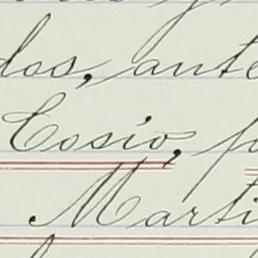 dos, ante
Cosio, p
Marti